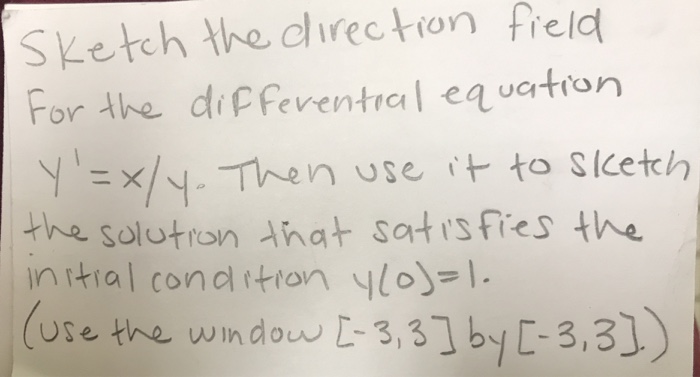 Sketch the direction field
For the differential equation
y'=x/y. Then use it to sketch
the solution that satisfies the
initial condition y(0)=1.
(use the window [-3,3] by [-3,3].)